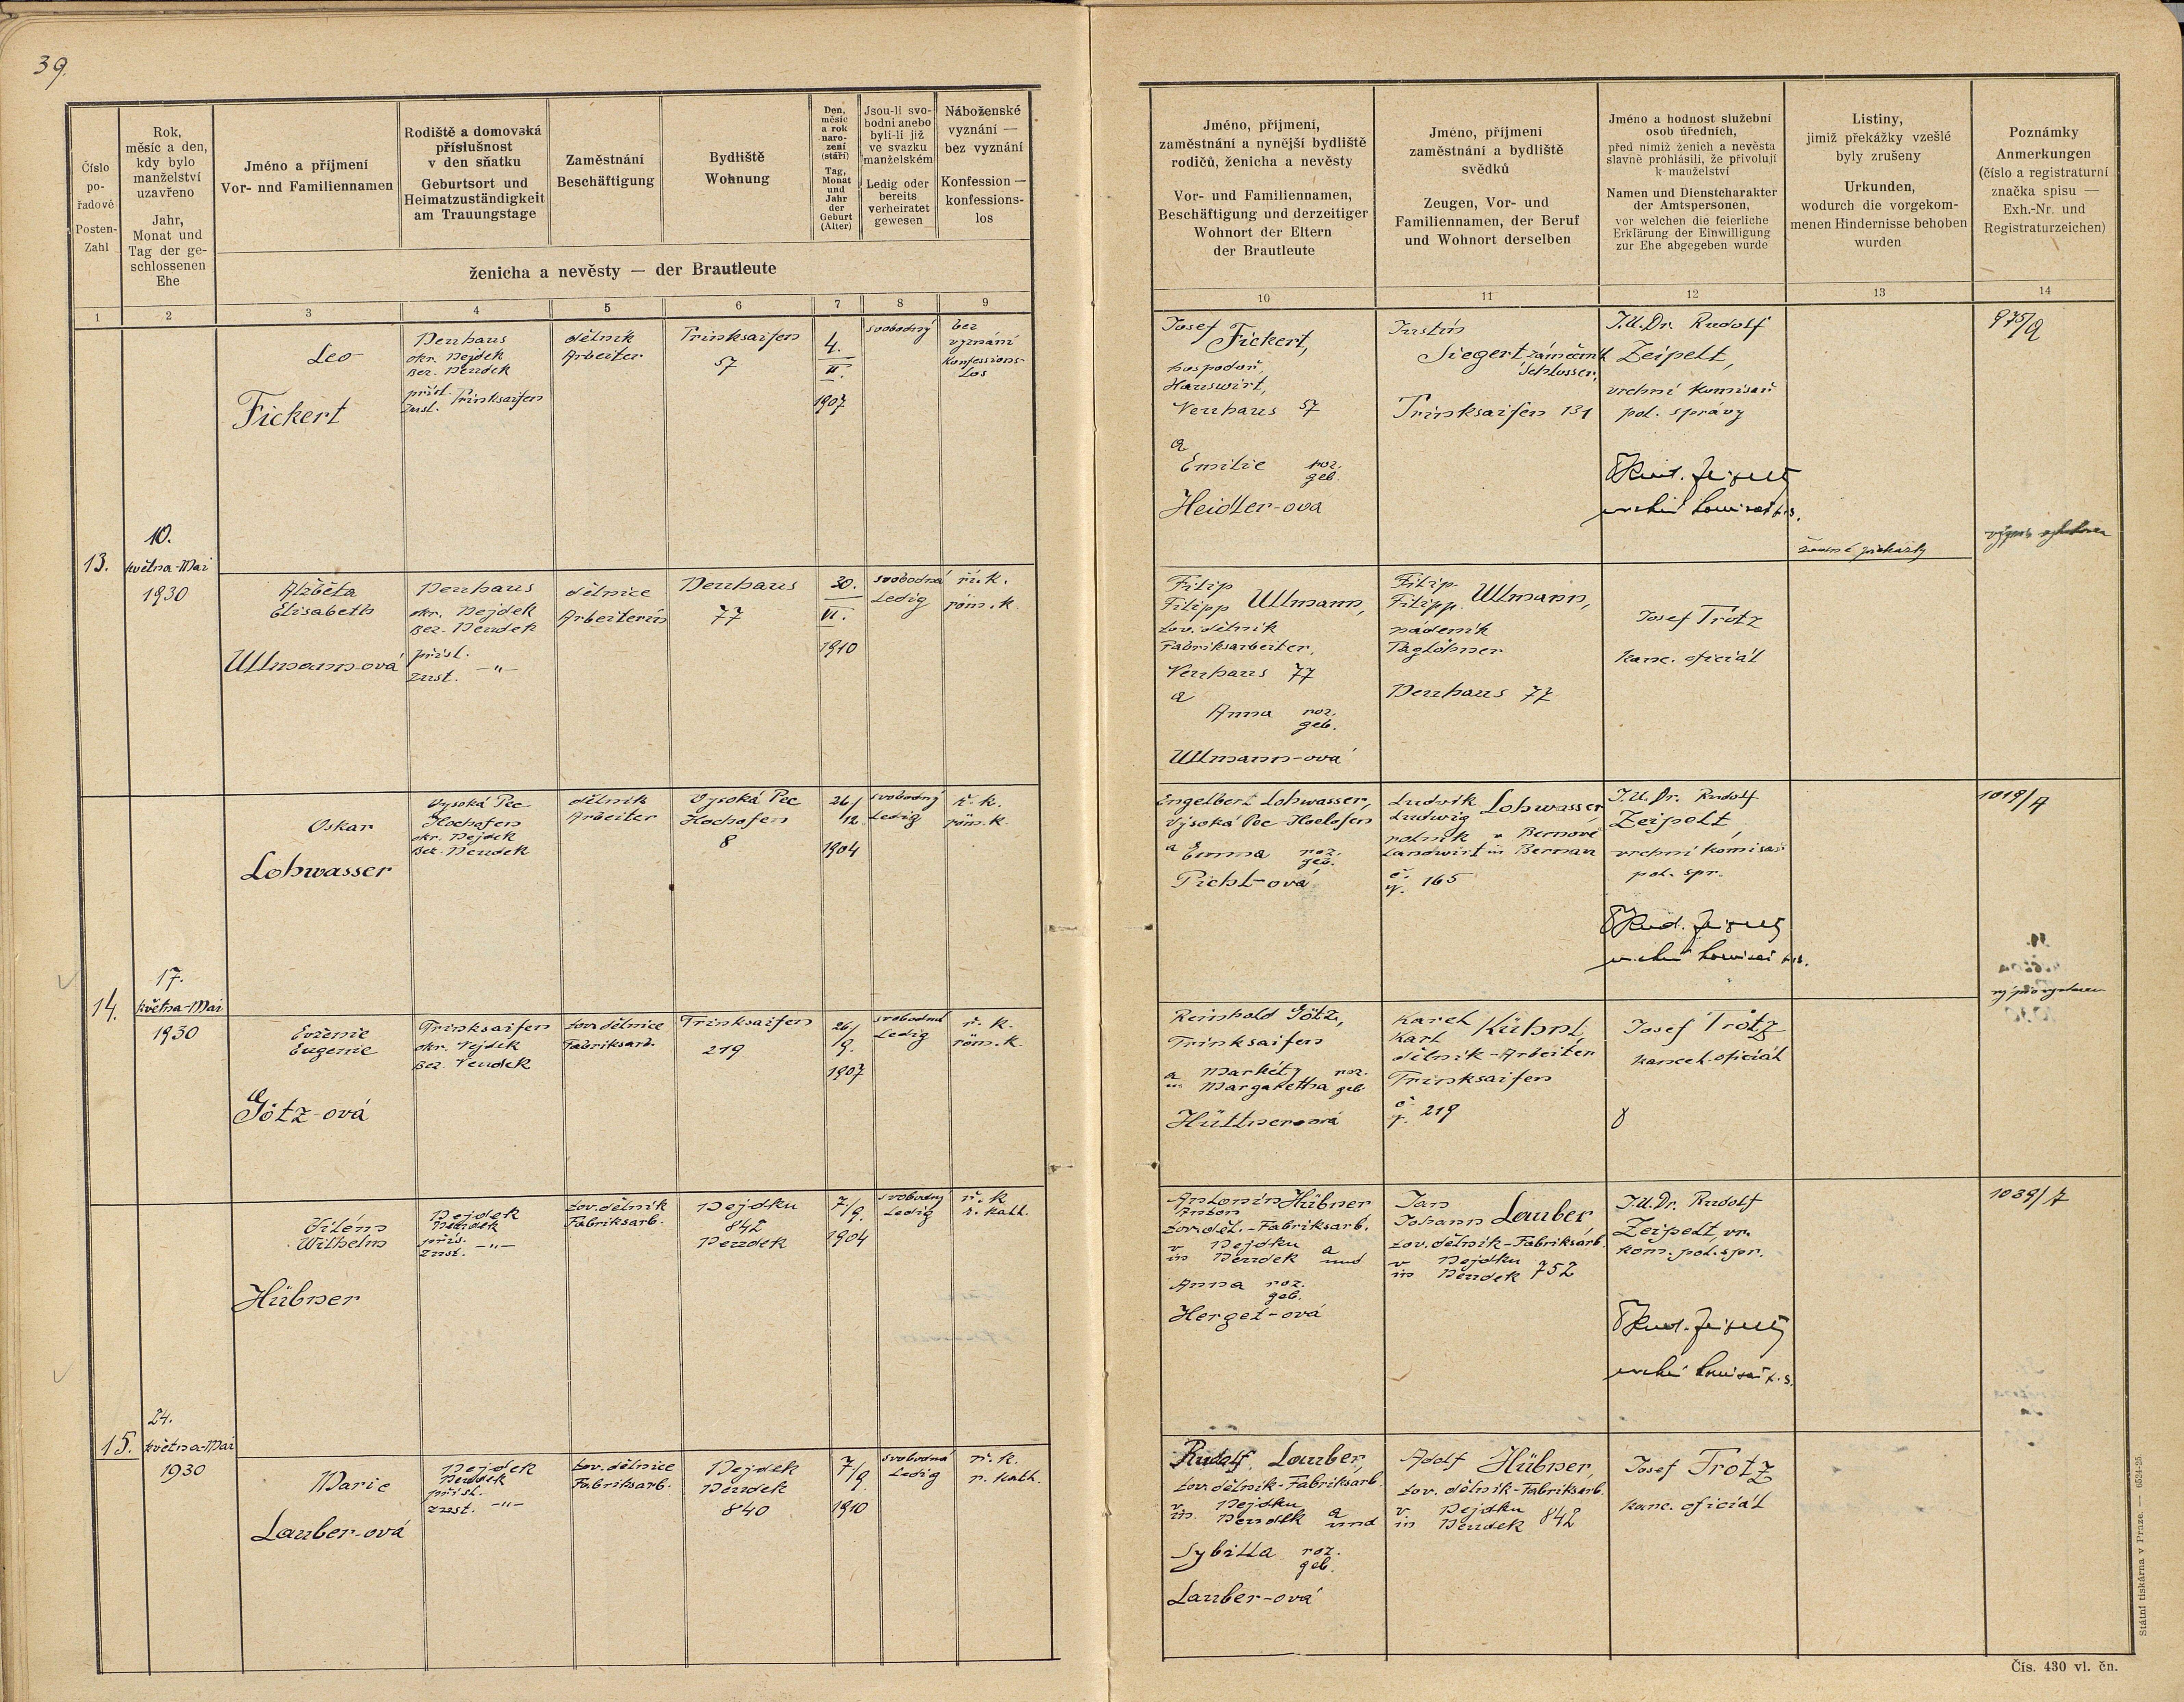 39.
Číslo
po-
řadové
Posten-
Zahl
Rok,
měsíc a den,
kdy bylo
manželství
uzavřeno
Jahr,
Monat und
Tag der ge-
schlossenen
Ehe
Jméno a příjmení
Vor- und Familiennamen
Rodiště a domovská
příslušnost
v den sňatku
Geburtsort und
Heimatzuständigkeit
am Trauungstage
Zaměstnání
Beschäftigung
Bydliště
Wohnung
Den,
měsíc
a rok
naro-
zení
(stáří)
Tag,
Monat
und
Jahr
der
Geburt
(Alter)
Jsou-li svo-
bodni anebo
byli-li již
ve svazku
manželském
Ledig oder
bereits
verheiratet
gewesen
Náboženské
vyznání —
bez vyznání
Konfession —
konfessions-
los
ženicha a nevěsty — der Brautleute
1 2 3 4 5 6 7 8 9
13.
10.
května-Mai
1930
Leo
Fickert
Neuhaus
okr. Nejdek
Bez. Neudek
přísl.
zust. Trinksaifen
dělník
Arbeiter
Trinksaifen
57
4.
II.
1907
svobodný
bez
vyznání
Konfessions-
los
Alžběta
Elisabeth
Ullmann-ová
Neuhaus
okr. Nejdek
Bez. Neudek
přísl.
zust. -"-
dělnice
Arbeiterin
Neuhaus
77
20.
VI.
1910
svobodná
Ledig
ř. k.
röm. k.
14.
17.
května-Mai
1930
Oskar
Lohwasser
Vysoká Pec
Hochofen
okr. Nejdek
Bez. Neudek
dělník
Arbeiter
Vysoká Pec
Hochofen
8
26/
/12
1904
svobodný
Ledig
ř. k.
röm. k.
Evženie
Eugenie
Götz-ová
Trinksaifen
okr. Nejdek
Bez. Neudek
tov. dělnice
Fabriksarb.
Trinksaifen
219
26/
/9.
1907
svobodná
Ledig
ř. k.
röm. k.
15.
24.
května-Mai
1930
Vilém
Wilhelm
Hübner
Nejdek
Neudek
přís.
zust. -"-
tov. dělník
Fabriksarb.
Nejdku
842
Neudek
7/9.
1904
svobodný
Ledig
ř. k
r. kath.
Marie
Lauber-ová
Nejdek
Neudek
přísl.
zust. -"-
tov. dělnice
Fabriksarb.
Nejdek
Neudek
840
7/9
1910
svobodná
Ledig
ř. k.
r. kath.
Jméno, příjmení,
zaměstnání a nynější bydliště
rodičů, ženicha a nevěsty
Vor- und Familiennamen,
Beschäftigung und derzeitiger
Wohnort der Eltern
der Brautleute
Jméno, příjmení
zaměstnání a bydliště
svědků
Zeugen, Vor- und
Familiennamen, der Beruf
und Wohnort derselben
Jméno a hodnost služební
osob úředních,
před nimiž ženich a nevěsta
slavně prohlásili, že přivolují
k manželství
Namen und Dienstcharakter
der Amtspersonen,
vor welchen die feierliche
Erklärung der Einwilligung
zur Ehe abgegeben wurde
Listiny,
jimiž překážky vzešlé
byly zrušeny
Urkunden,
wodurch die vorgekom-
menen Hindernisse behoben
wurden
Poznámky
Anmerkungen
(číslo a registraturní
značka spisu —
Exh.-Nr. und
Registraturzeichen)
10 11 12 13 14
Josef
Fickert,
hospodář,
Hauswirt,
Neuhaus 57
a
Emilie roz.
geb.
Heidler-ova
Justin
Siegert, zámečník
Schlosser,
Trinksaifen 131
J.U.Dr. Rudolf
Zeipelt,
vrchní komisař
pol. správy
975/
Filip
Filipp Ullmann,
tov. dělník
Fabriksarbeiter,
Neuhaus 77
a
Anna roz.
geb.
Ullmann-ová
Filip
Filipp Ullmann,
nádeník
Taglöhner
Neuhaus 77
Josef Trötz
kanc. oficiál
Engelbert Lohwasser,
Vysoká Pec Hochofen
a Emma roz.
geb.
Pichl-ová
Ludvík
Ludwig Lohwasser
rolník v Bernově
Landwirt in Bernau
č. 165
J.U.Dr. Rudolf
Zeipelt,
vrchní komisař
pol. spr.
1019/7
Reinhold Götz,
Trinksaifen
a Markéty roz.
u. Margaretha geb.
Hüttnerová
Karel
Karl Kühnl,
dělník-Arbeiter
Trinksaifen
č. 219
Josef Trötz
kancel. oficiál
Antonín Hübner
Anton
tov. děl.-Fabriksarb.
v Nejdku a
in Neudek und
Anna roz.
geb.
Herget-ová
Jan
Johann Lauber
tov. dělník-Fabriksarb.
v Nejdku
in Neudek 752
J.U.Dr. Rudolf
Zeipelt, vr.
kom. pol. spr.
1039/7
Rudolf Lauber,
tov. dělník-Fabriksarb.
v. Nejdku a
in. Neudek und
Sybilla roz.
geb.
Lauber-ová
Adolf Hübner,
tov. dělník-Fabriksarb.
v. Nejdku
in Neudek 842
Josef Trötz
kanc. oficiál
Státní tiskárna v Praze. — 6524-25.
Čís. 430 vl. čn.